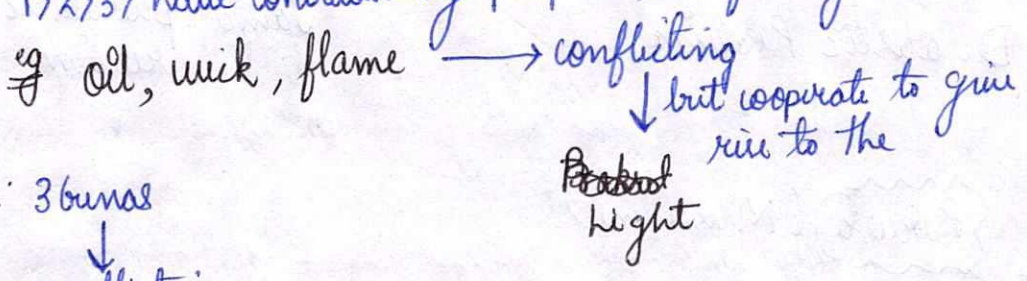 1/2/3/ have
eg oil, wick, flame → conflicting
↓ but cooperate to give
rise to the
Light
3 Gunas
↓